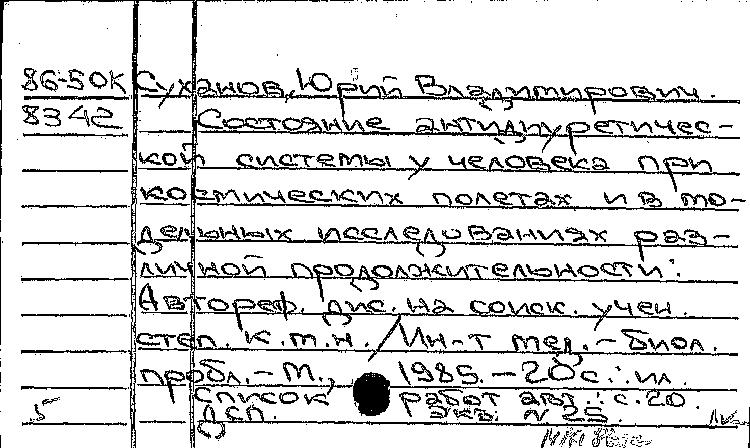 86-50К Суханов, Юрий Владимирович.
8342 Состояние антидиуретичес-
кой системы у человека при
космических полетах и в мо-
дельных исследованиях раз-
личной продолжительности:
Автореф. дис. на соиск. учен.
степ. к.м.н. / Ин-т мед.-биол.
пробл. - М., 1985. - 20 с.: ил.
Список работ авт.: с. 20.
5 ДСП. Экз. N 25.